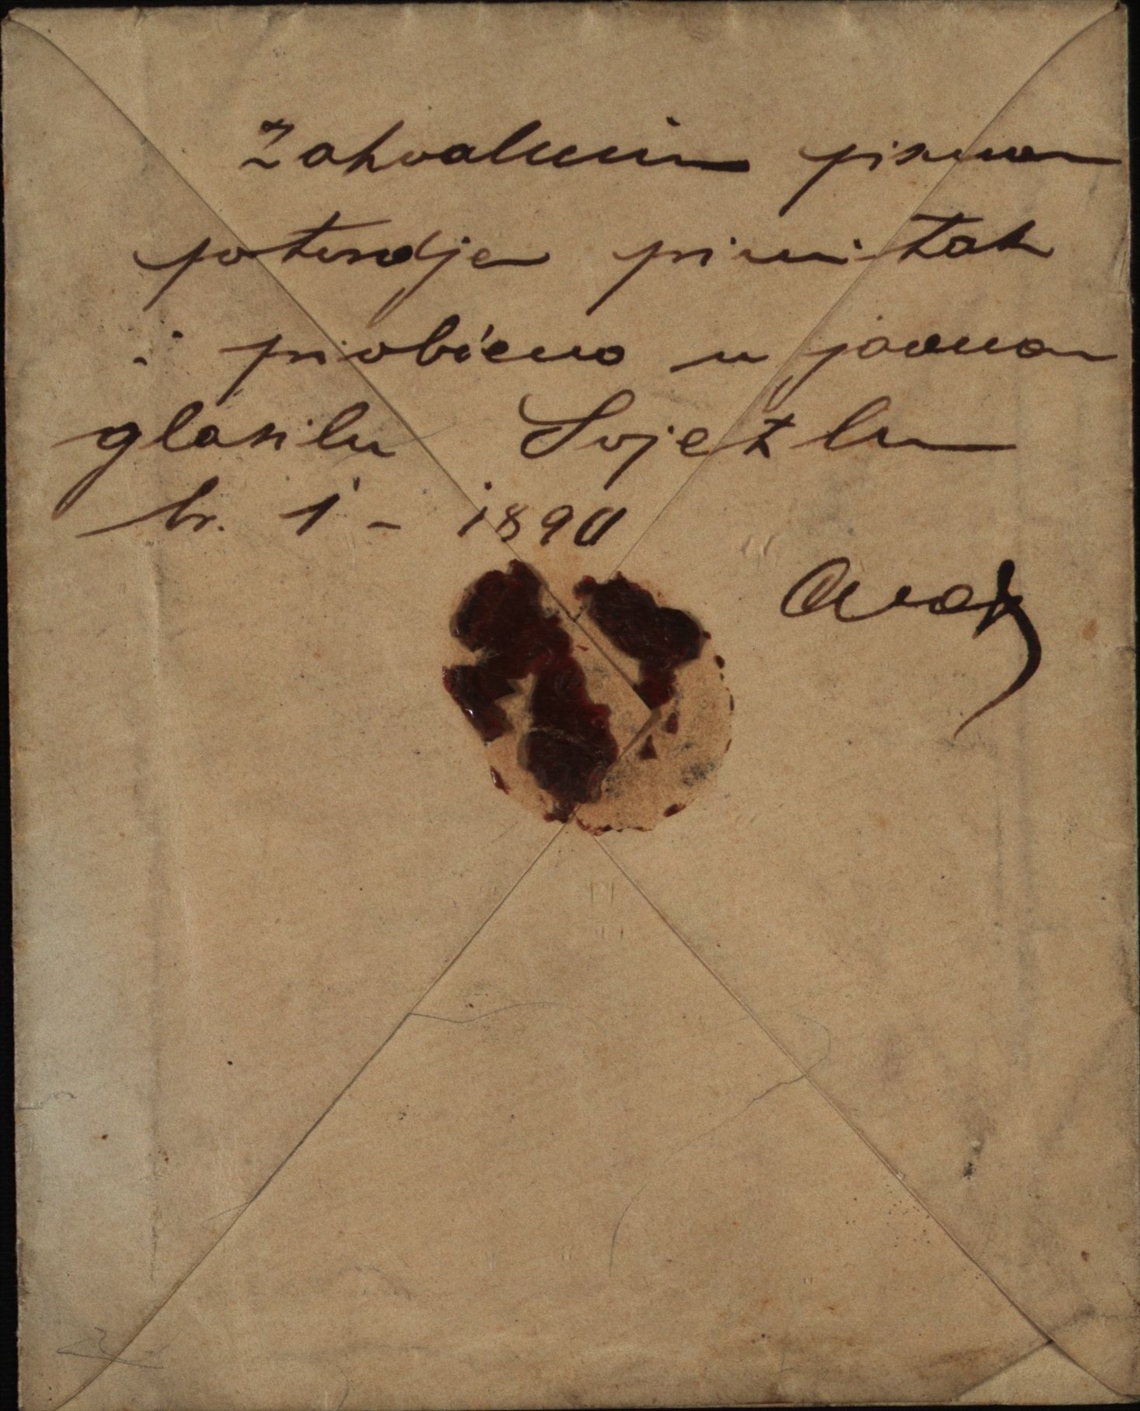 Zahvalnim pismom
potvrdjen primitak
i priobćeno u javnom
glasilu Svjetlu
br. 1 - 1890